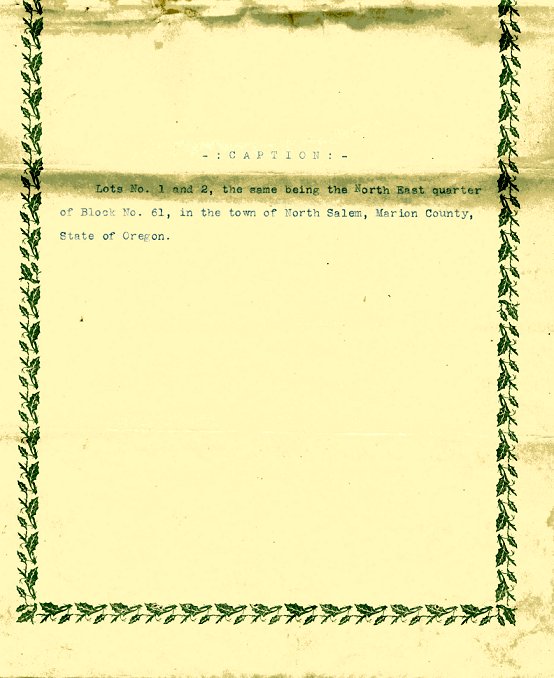 -:CAPTION:-
Lots No. 1 and 2, the same being the North East quarter
of Block No. 61, in the town of North Salem, Marion County,
State of Oregon.